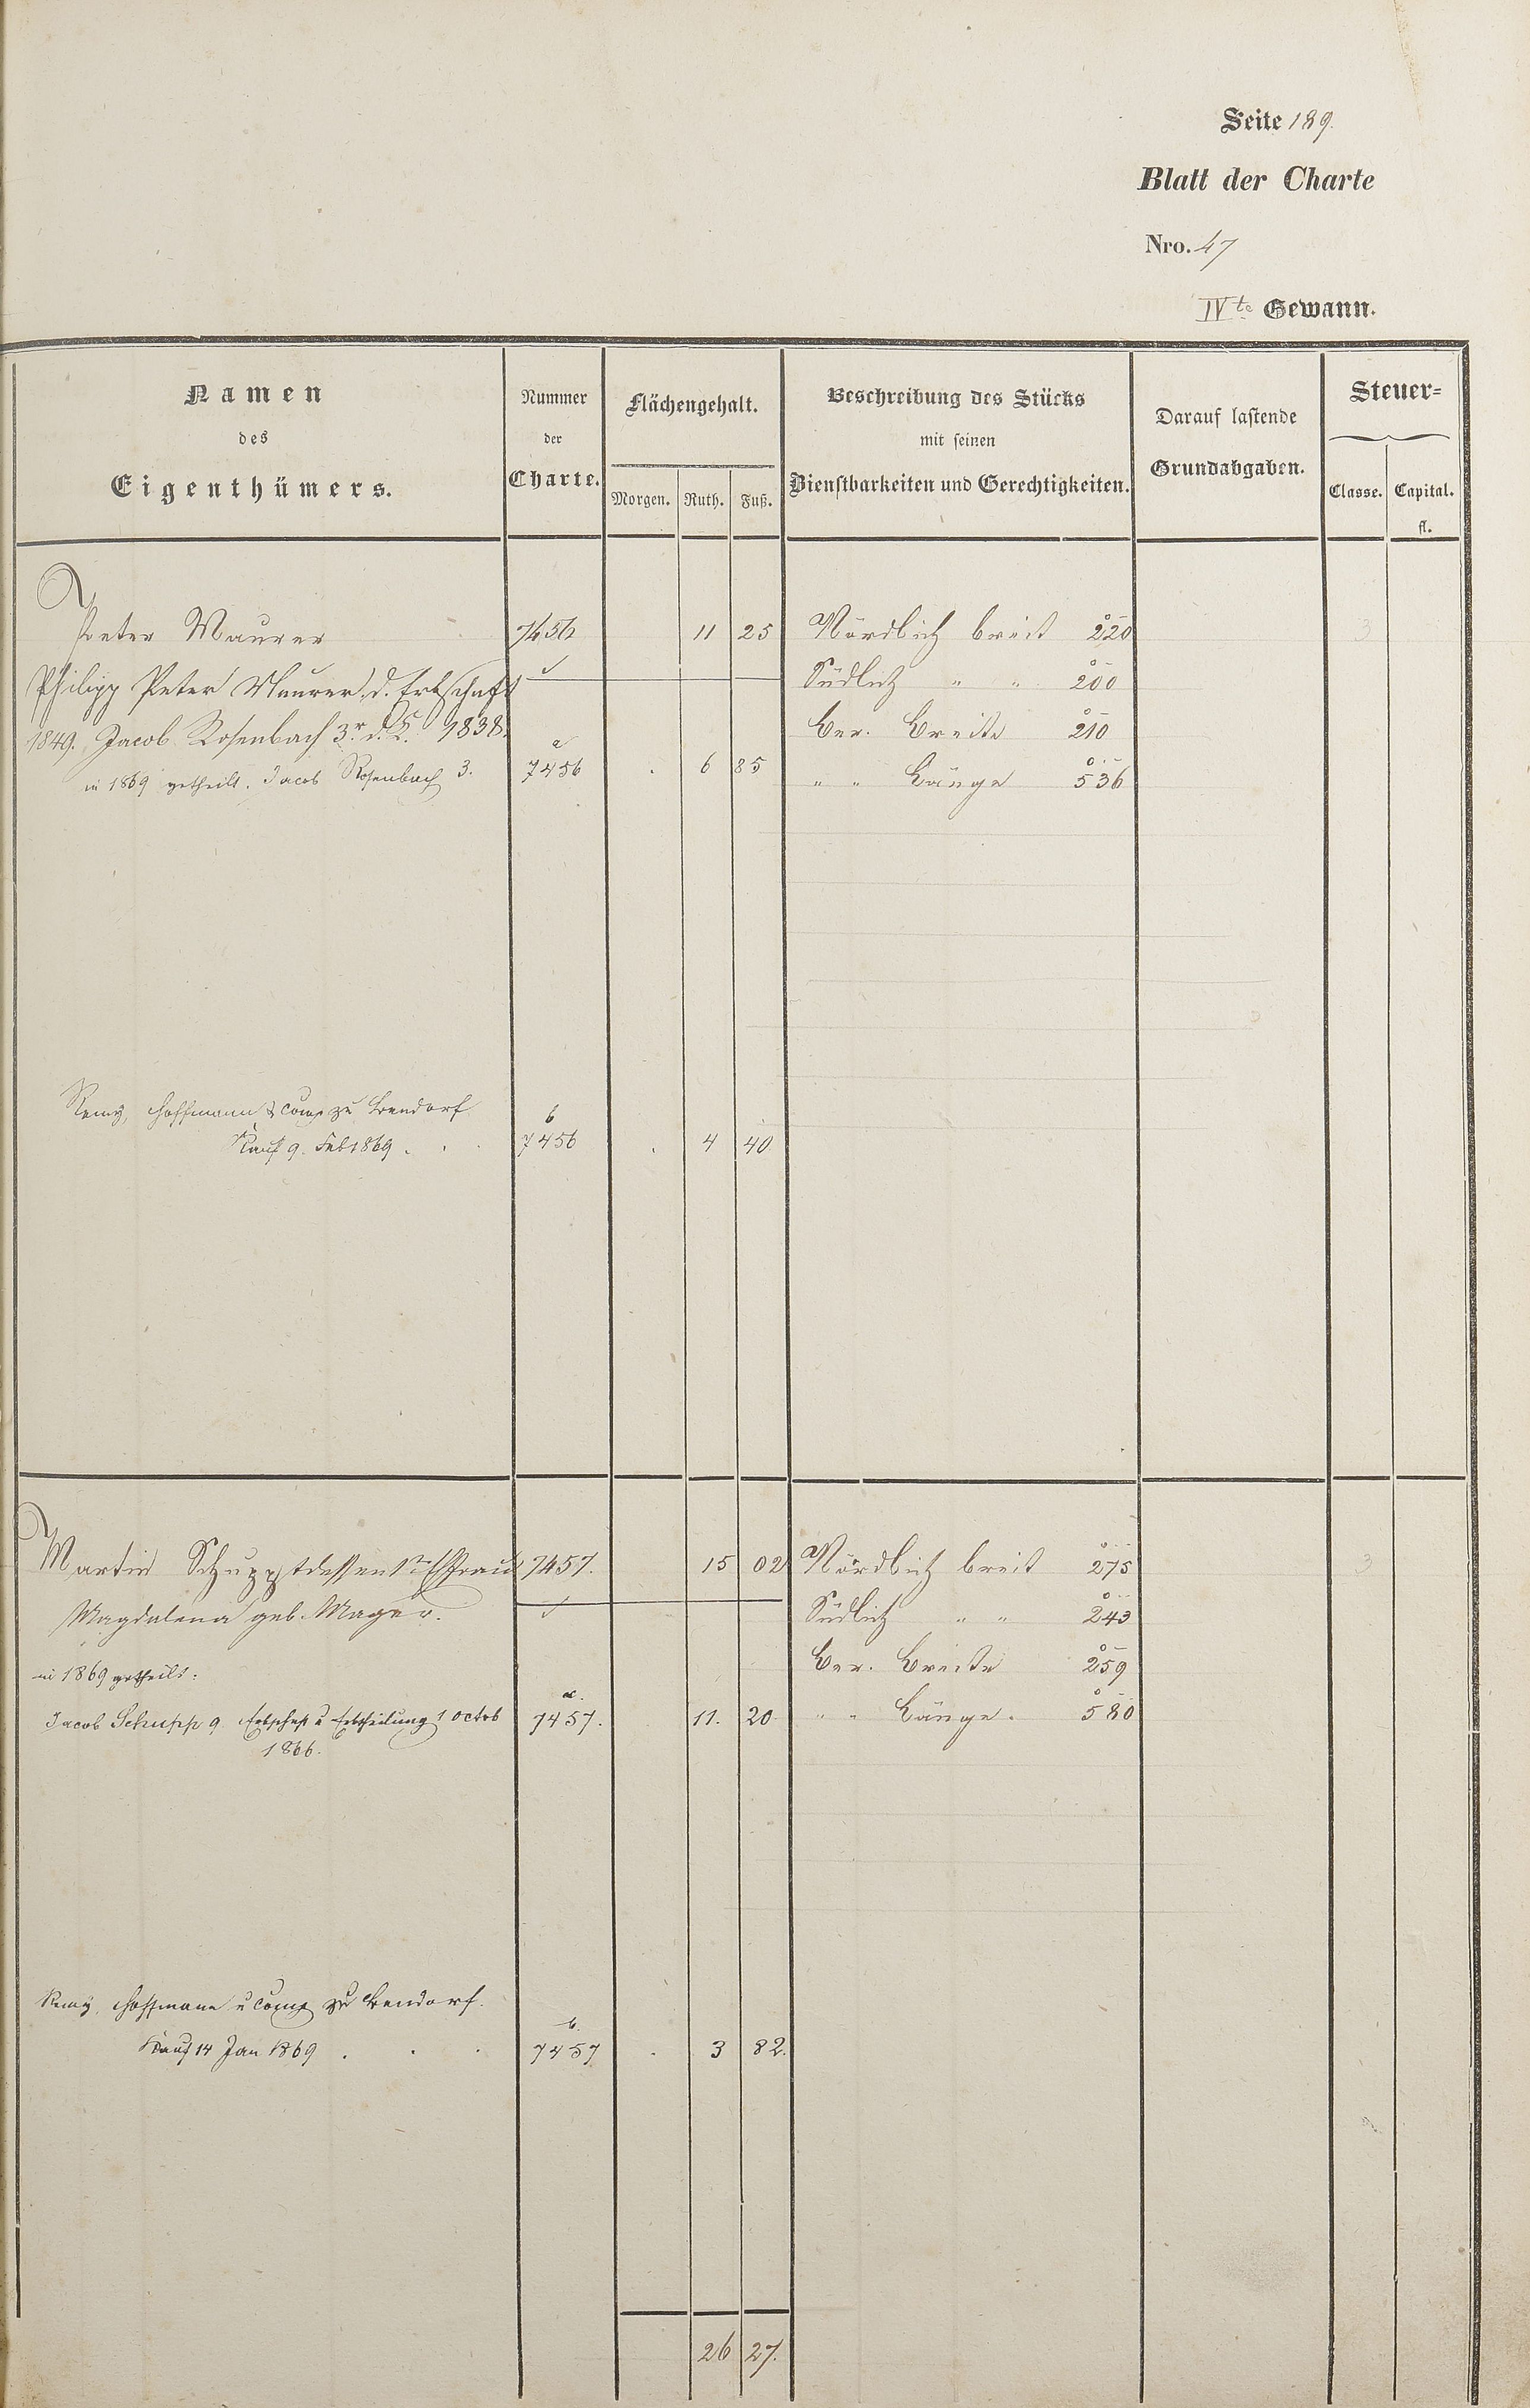 Seite 189.
Blatt der Charte
Nro. 47
IVte Gewann.
Namen
des
Eigenthümers.
Nummer
der
Charte.
Flächengehalt.
Morgen. Ruth. Fuß.
Beschreibung des Stücks
mit seinen
Dienstbarkeiten und Gerechtigkeiten.
Darauf lastende
Grundabgaben.
Steuer=
Classe. Capital.
fl.
Peter Maurer 7456 11 25 Nördlich breit 220 3
Philipp Peter Maurer d. Erbschaft Südlich " " 200
1849. Jacob Rosenbach 3r d. K. 1838. Ber. Breite 210
in 1869 getheilt. Jacob Rosenbach 3. 7456 a 6 85 " " Länge 536
Remy, Hoffmann & Comp zu Bendorf
Kauf 9. Feb 1869 . . 7456 b . 4 40
Martin Schupp dessen Ehfrau 7457. 15 02 Nördlich breit 275 3
Magdalena geb. Mager. Südlich " " 243
in 1869 getheilt: Ber. Breite 259
Jacob Schupp 9. Erbschaft u Erbtheilung 1 Octob 7457. a. 11. 20 " " Länge. 580
1866.
Remy, Hoffmann u Comp zu Bendorf.
Kauf 14 Jan 1869 . . . 7457 b. . 3 82.
26 27.